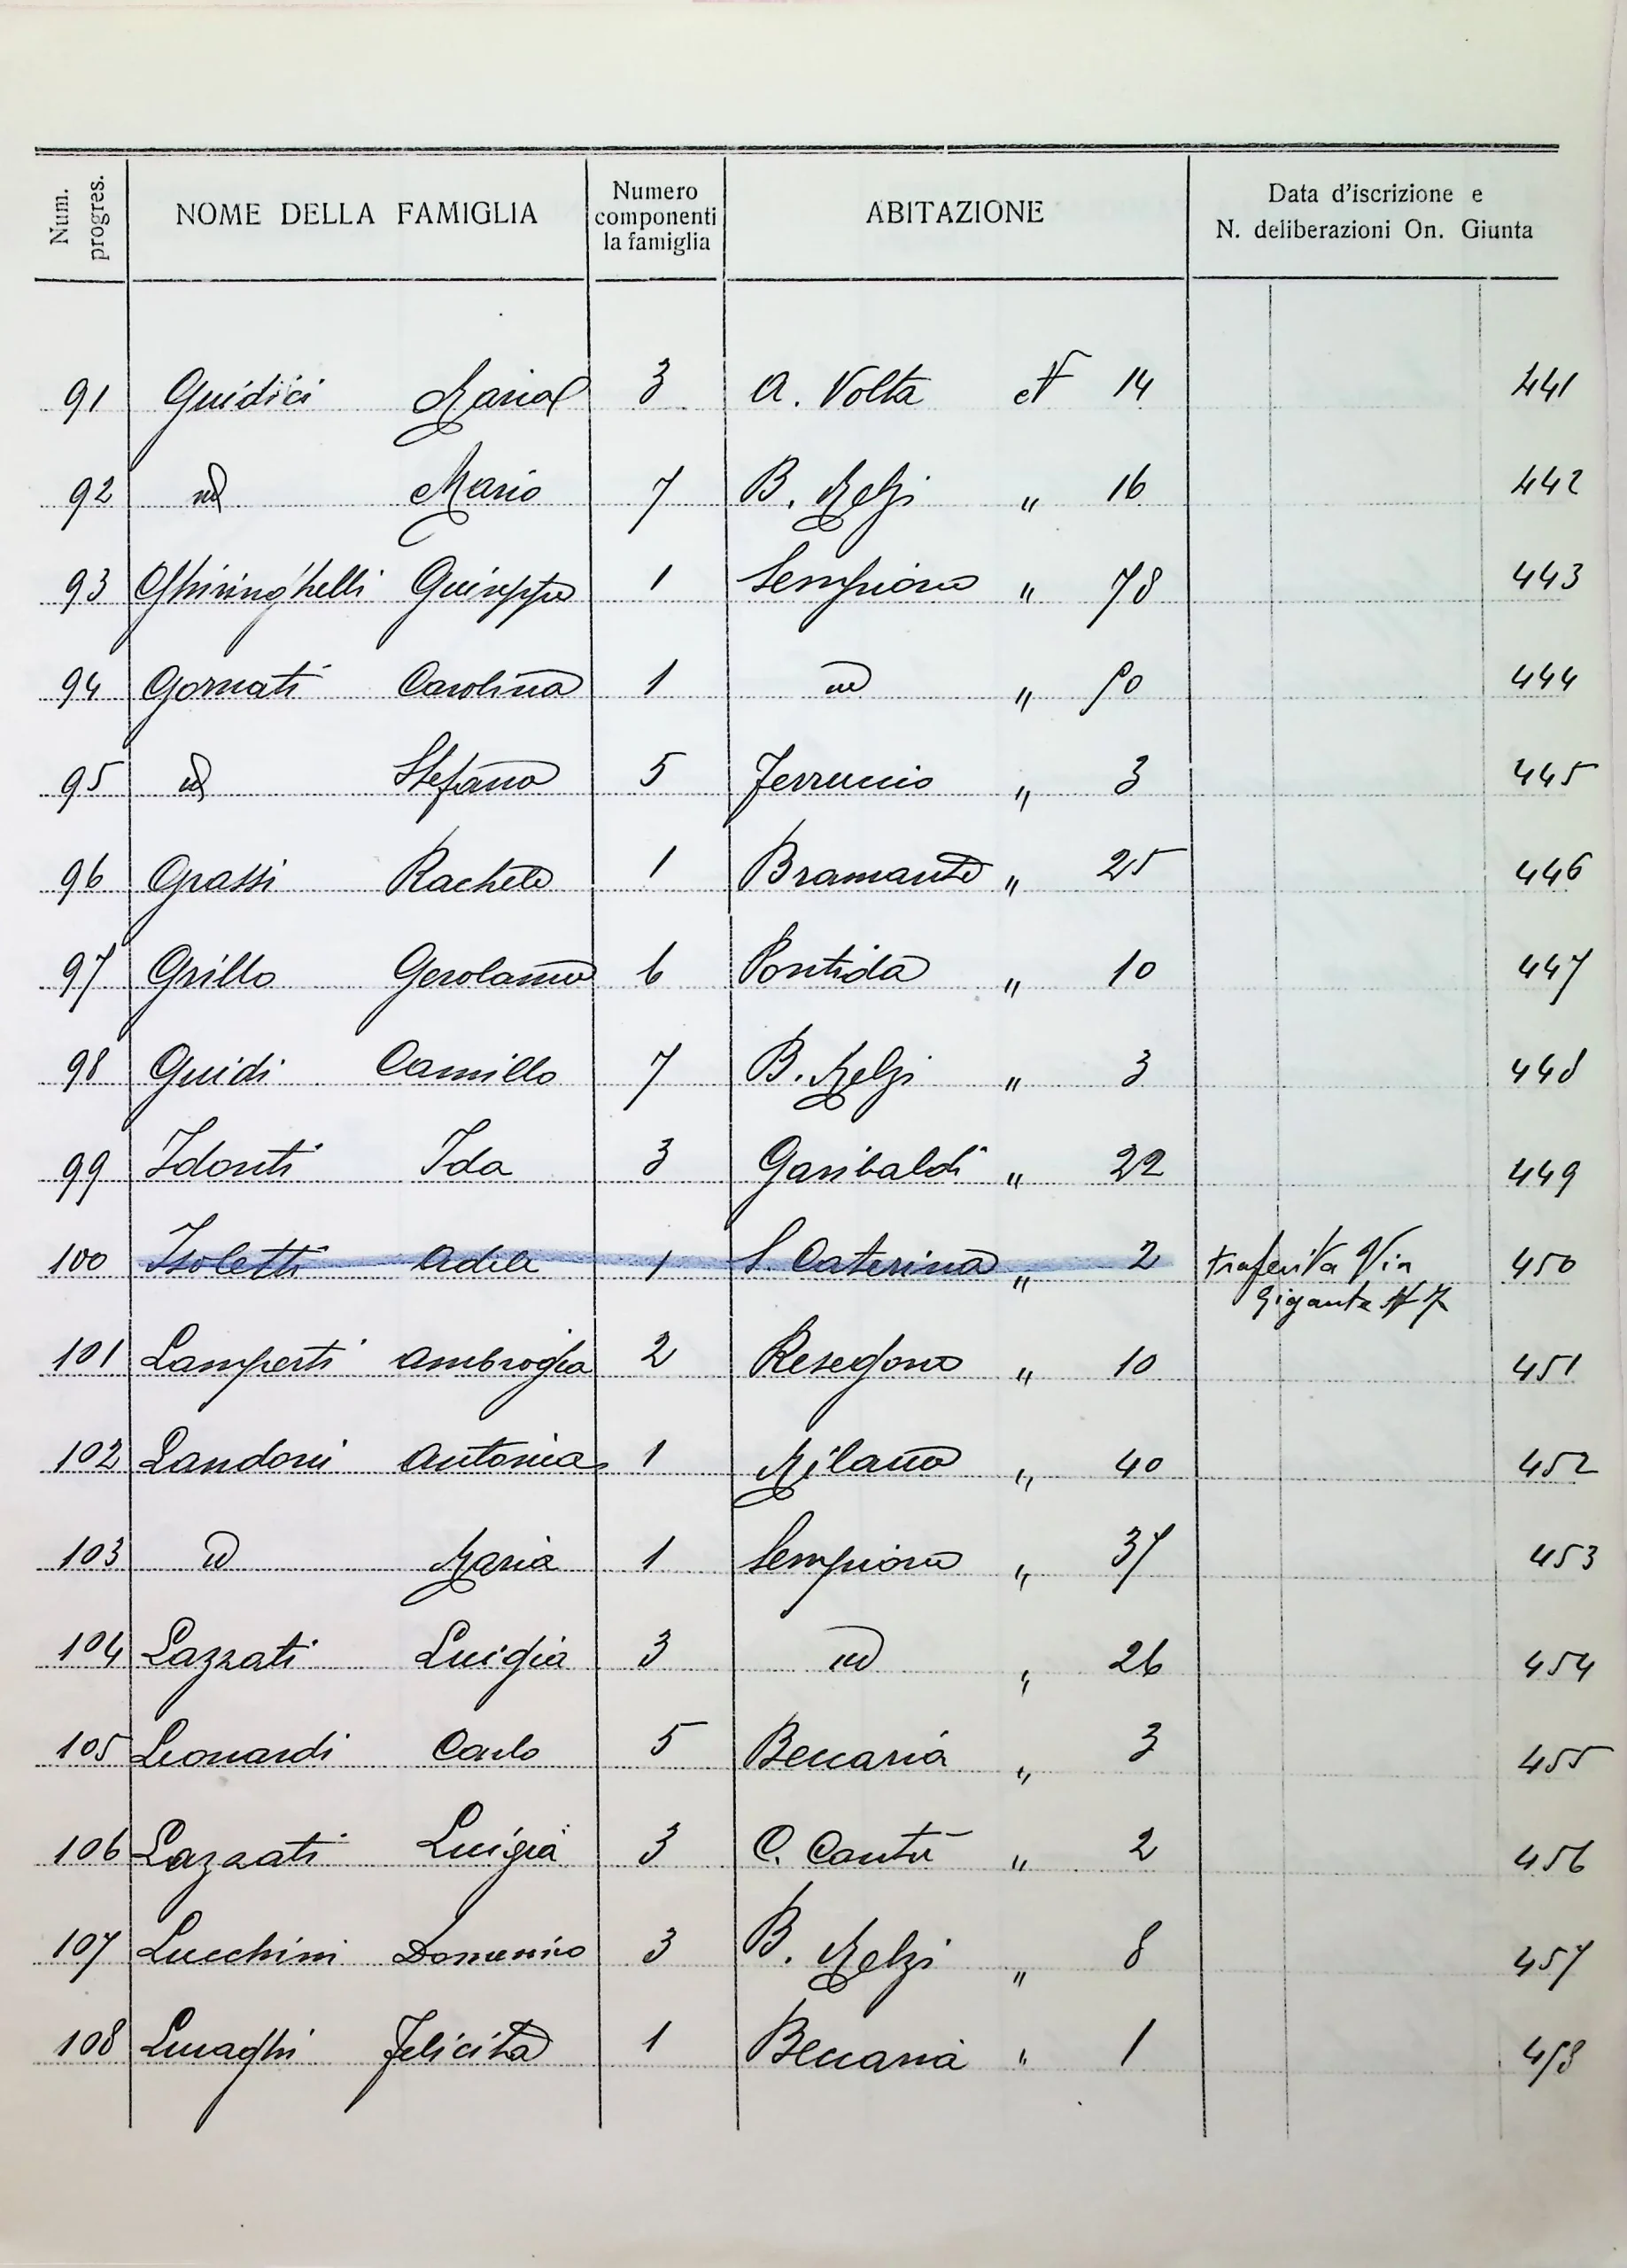 Num. progres.
NOME DELLA FAMIGLIA
Numero
componenti
la famiglia
ABITAZIONE
Data d'iscrizione e
N. deliberazioni On. Giunta
91 Guidici Maria 3 A. Volta N 14 441
92 id Mario 7 B. Melzi " 16 442
93 Ghiringhelli Guiseppe 1 Sempione " 78 443
94 Gornati Carolina 1 id " 90 444
95 id Stefano 5 Ferruccio " 3 445
96 Grassi Rachele 1 Bramante " 25 446
97 Grillo Gerolamo 6 Pontida " 10 447
98 Guidi Camillo 7 B. Melzi " 3 448
99 Idonti Ida 3 Garibaldi " 22 449
100 Isoletti Adele 1 S Caterina " 2 trasferita Via 450
Gigante N 7
101 Lamperti Ambrogia 2 Resegone " 10 451
102 Landoni Antonia 1 Milano " 40 452
103 id Maria 1 Sempione " 37 453
104 Lazzati Luigia 3 id " 26 454
105 Leonardi Carlo 5 Beccaria " 3 455
106 Lazzati Luigia 3 C. Cantù " 2 456
107 Lucchini Domenico 3 B. Melzi " 8 457
108 Luraghi Felicita 1 Beccaria " 1 458